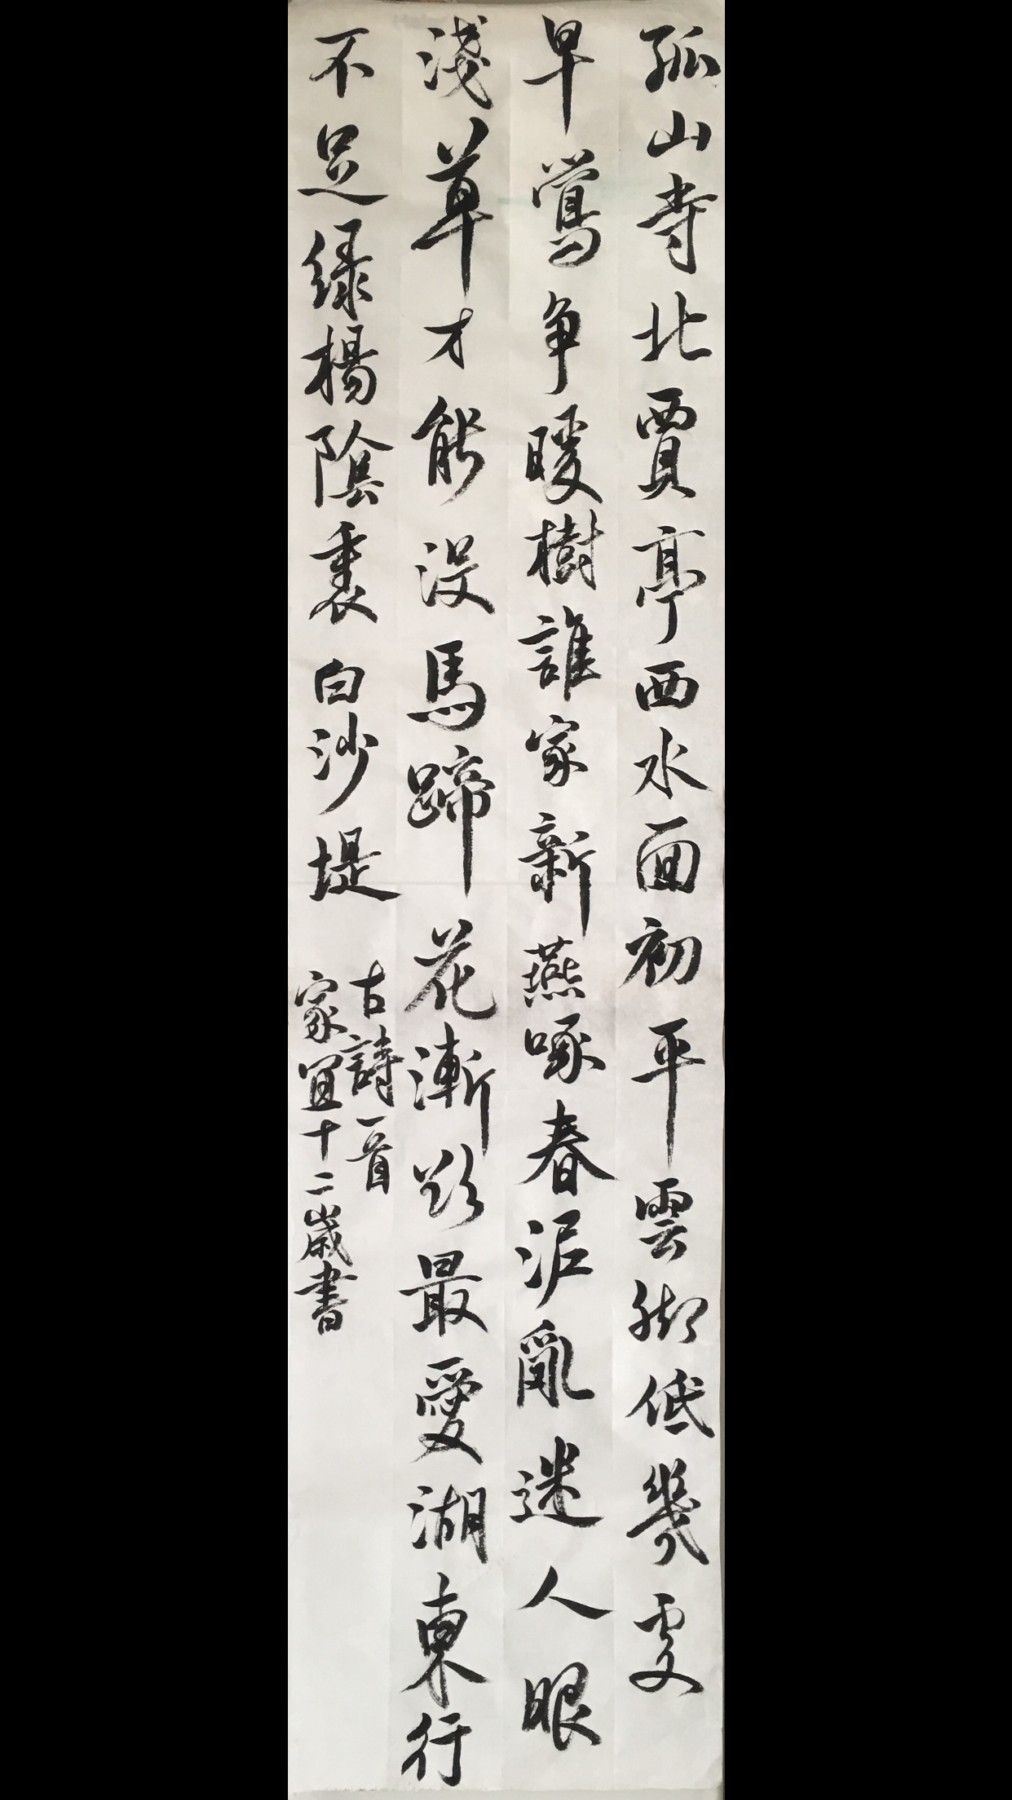 孤山寺北賈亭西水面初平雲腳低幾處
早鶯争暖樹誰家新燕啄春泥亂迷人眼
淺草才能没馬蹄花漸欲最愛湖東行
不足緑楊陰裏白沙堤
古詩一首
家宜十二歲書